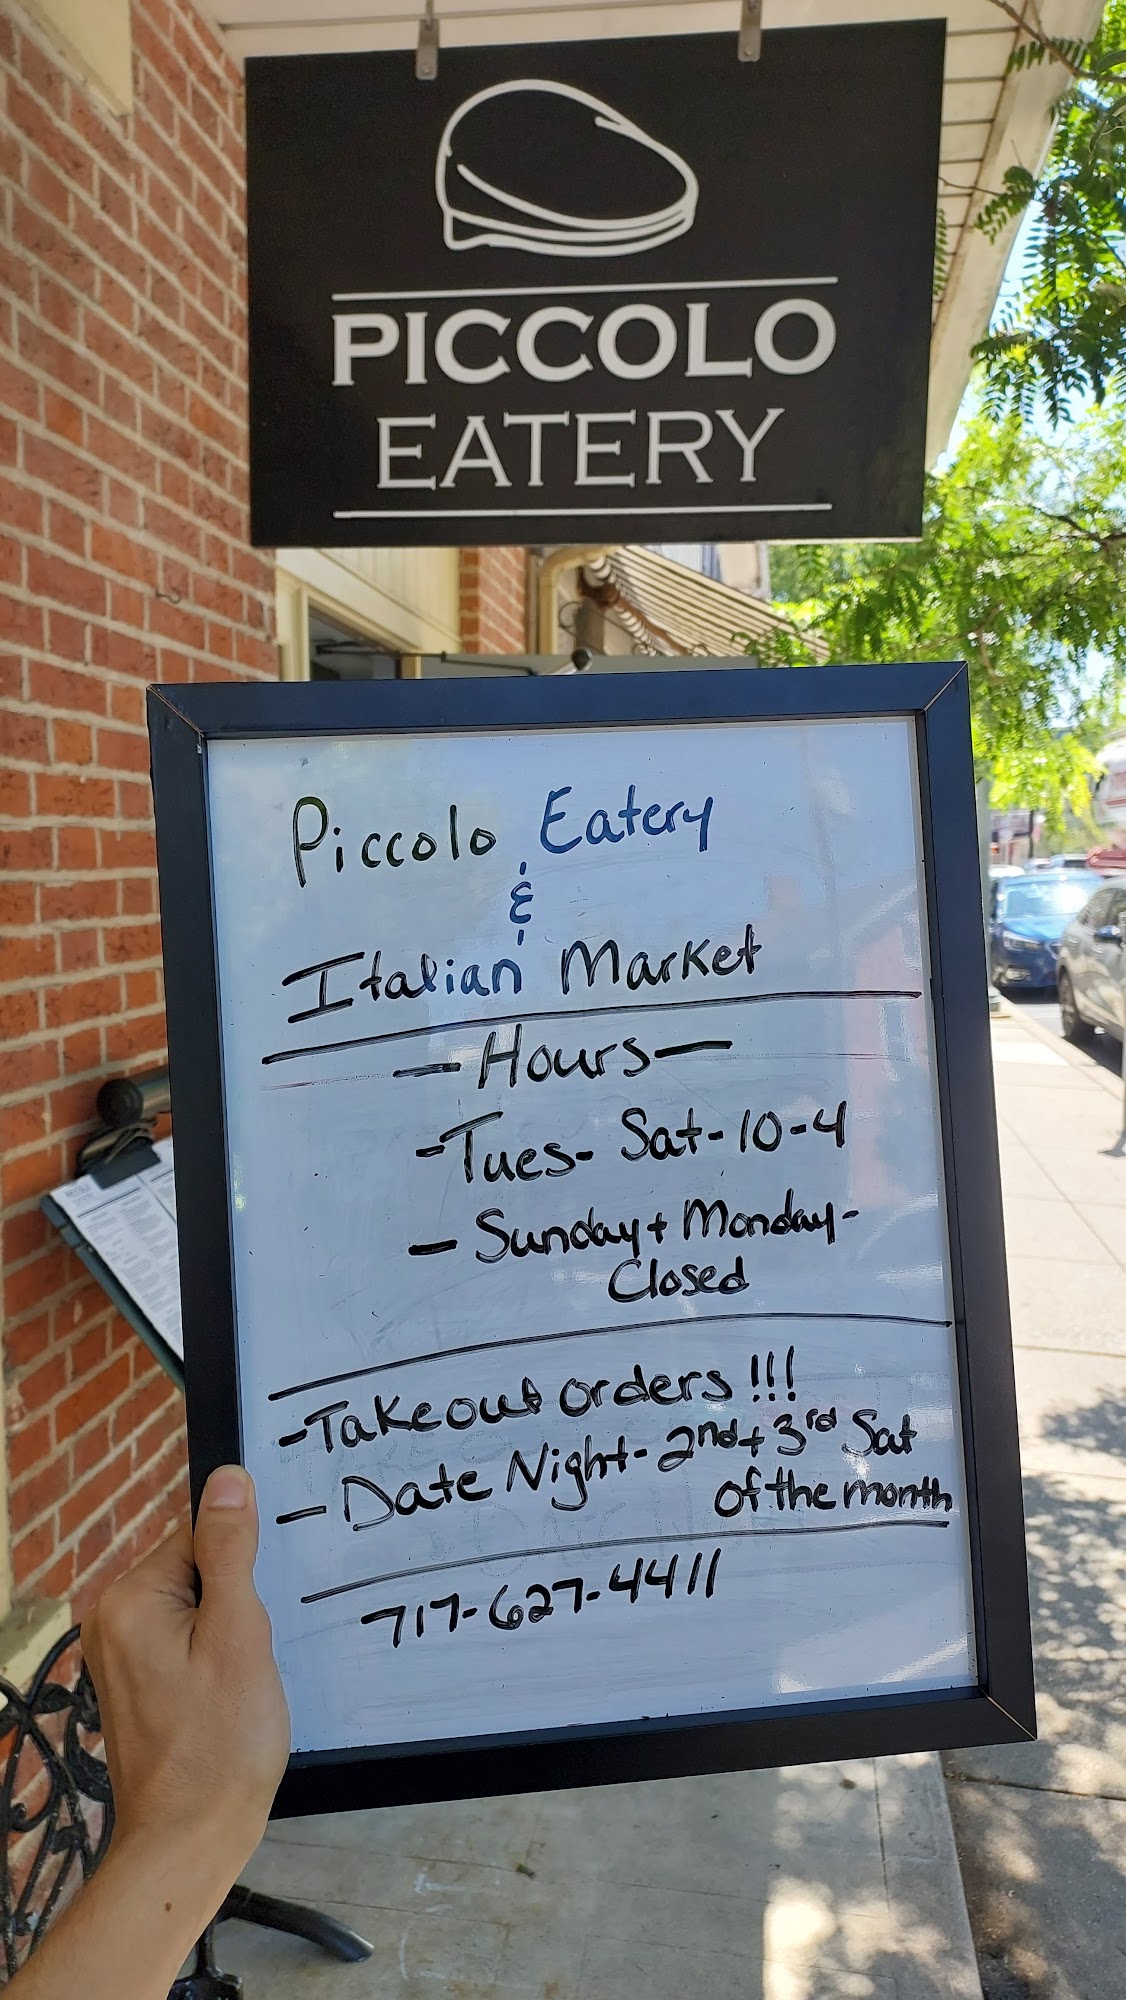 PICCOLO
EATERY
Piccolo Eatery
&
Italian Market
- Hours -
- Tues - Sat - 10 - 4
- Sunday + Monday -
Closed
- Takeout orders !!!
- Date Night - 2nd + 3rd Sat
of the month
717-627-4411